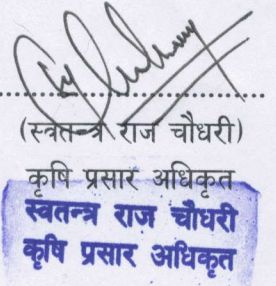 (स्वतन्त्र राज चौधरी)
कृषि प्रसार अधिकृत
स्वतन्त्र राज चौधरी
कृषि प्रसार अधिकृत